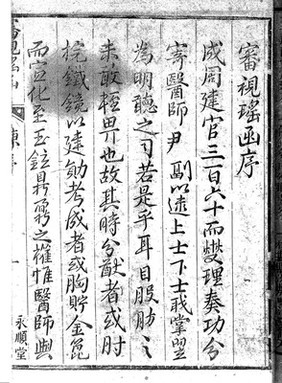 審視瑤函序
成周建官三百六十而燮理奏功分
寄醫師尹副以逮上士下士或掌翌
為明聽之司若是乎耳目股肱之
未敢輕畀也故其時分猷者或肘
挖鐵鏡以建勛考成者或胸貯金篦
而宣化至玉鉉鼎鼐之權惟醫師與
陳序
一
永順堂